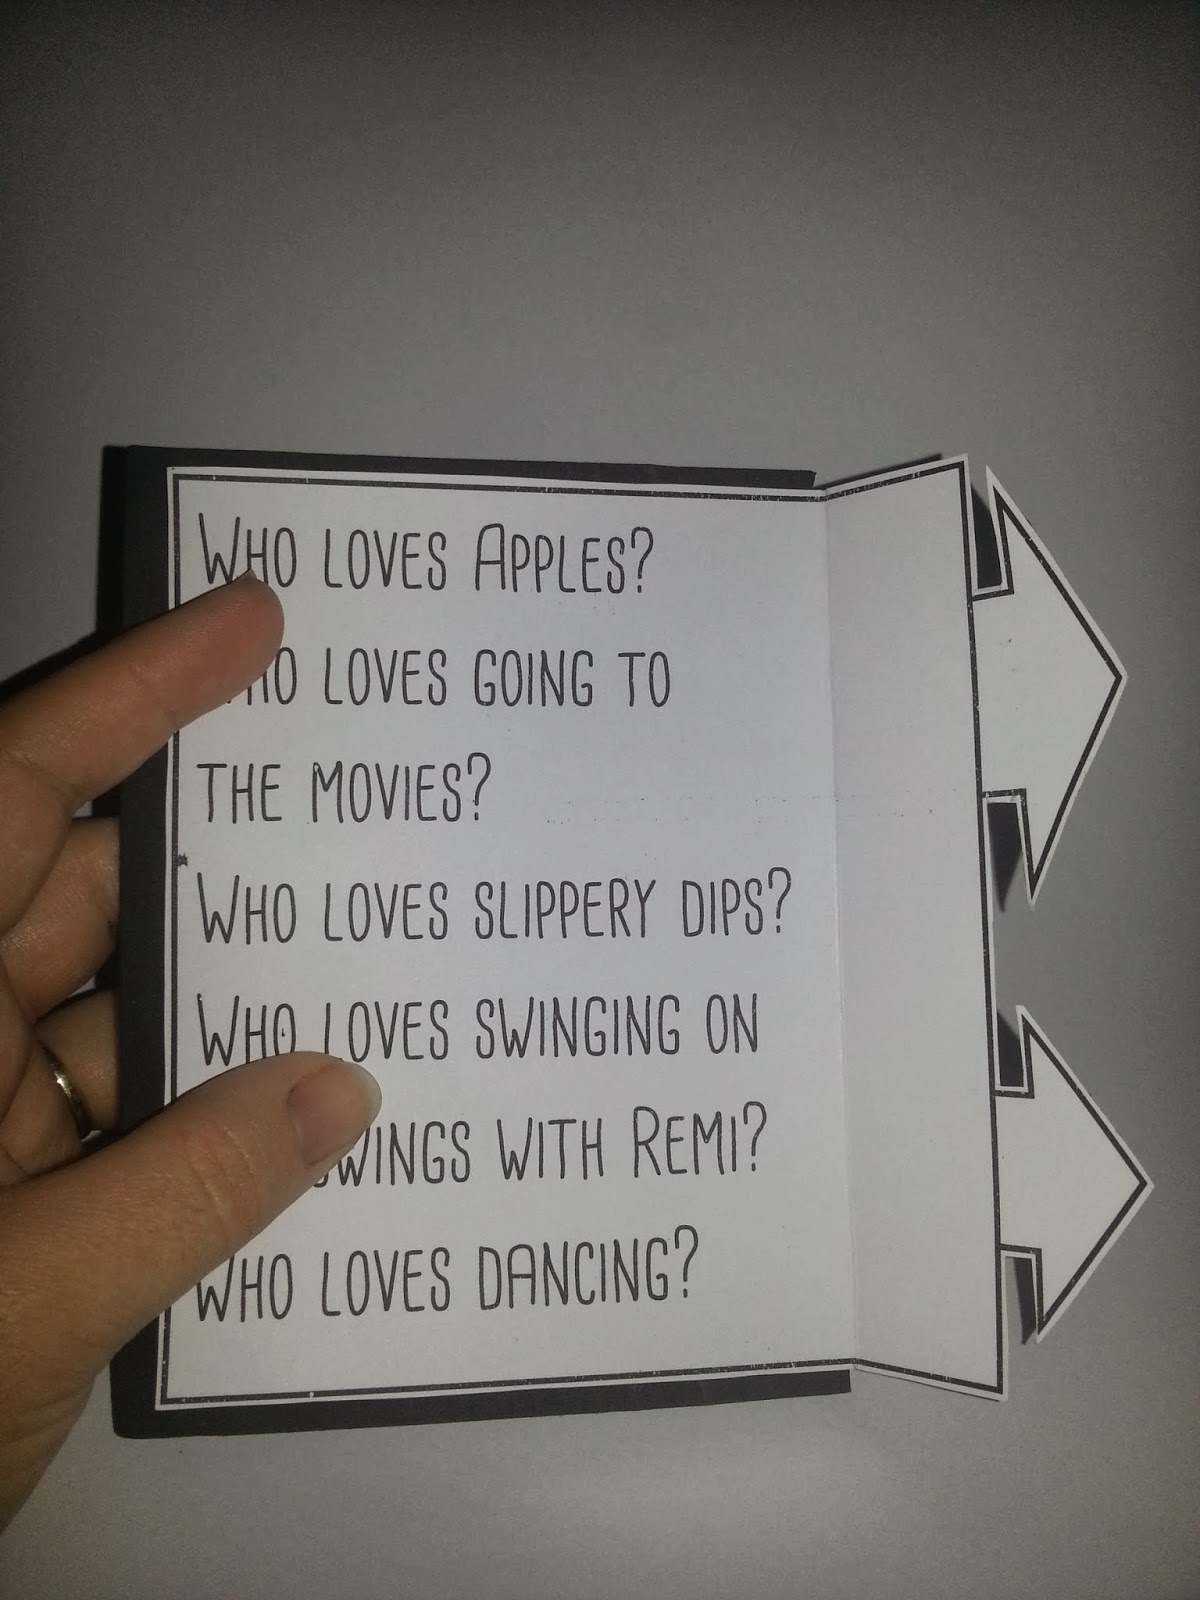 WHO LOVES APPLES?
WHO LOVES GOING TO
THE MOVIES?
WHO LOVES SLIPPERY DIPS?
WHO LOVES SWINGING ON
SWINGS WITH REMI?
WHO LOVES DANCING?